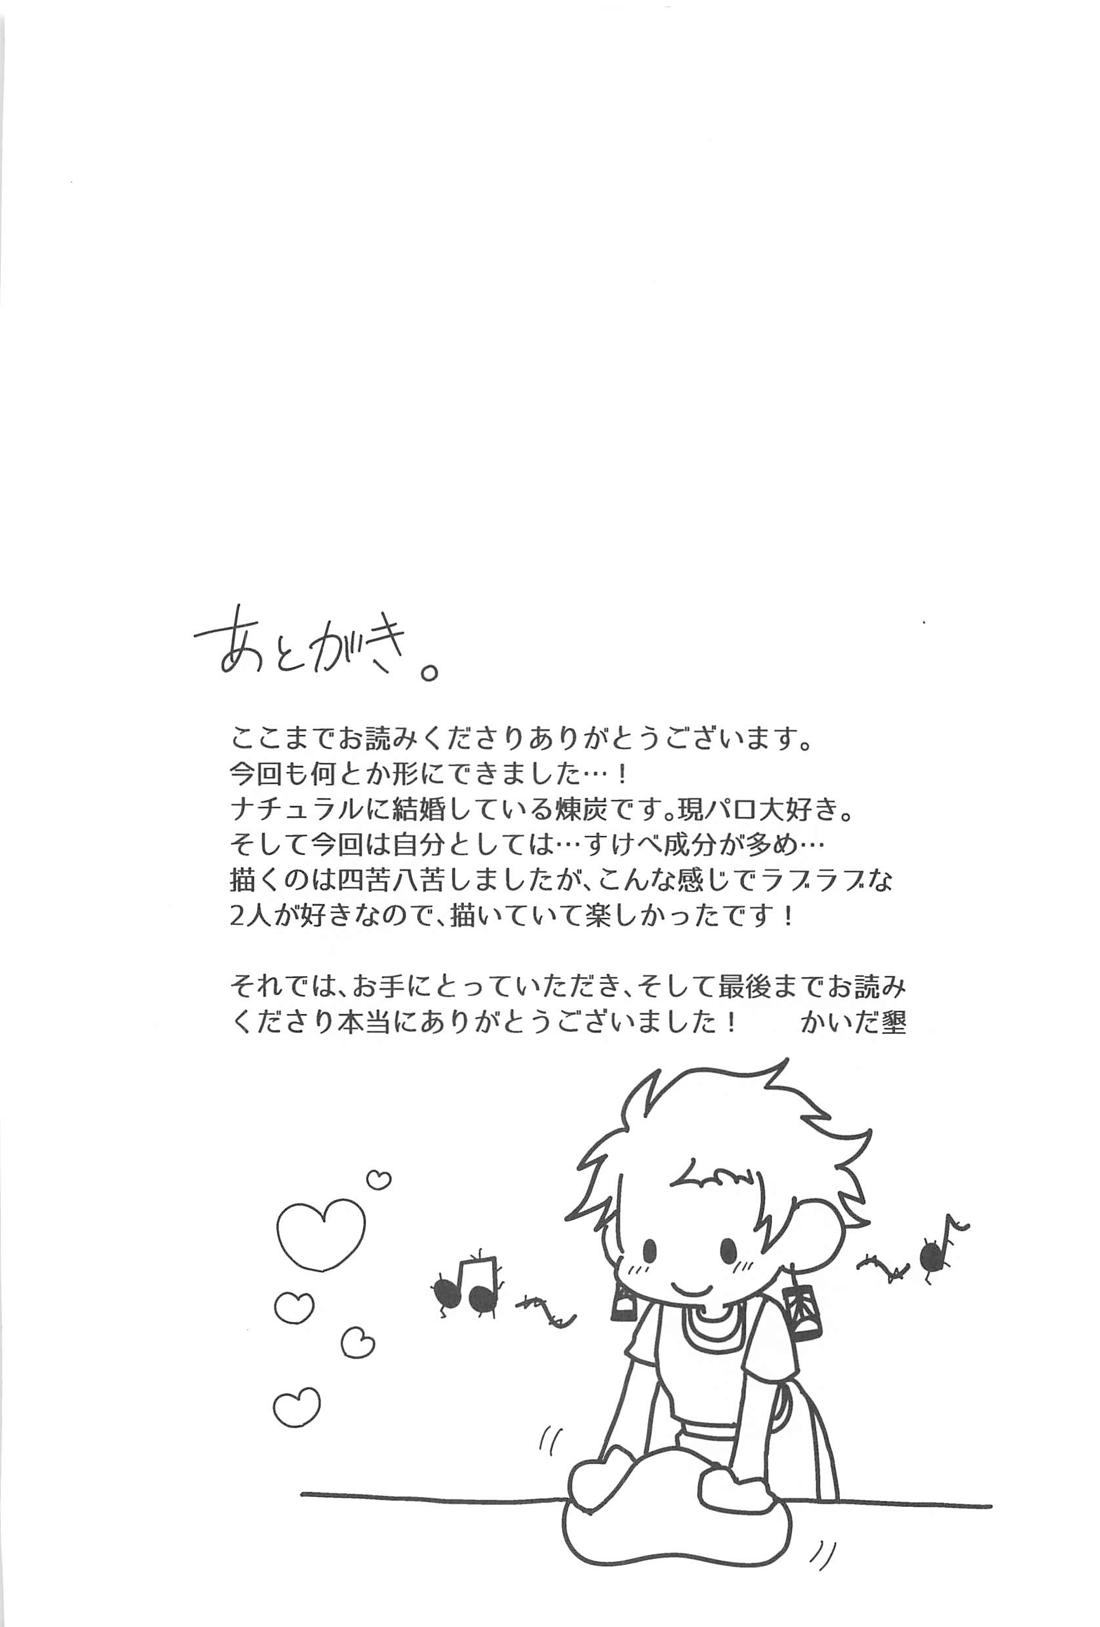 あとがき。
ここまでお読みくださりありがとうございます。
今回も何とか形にできました…！
ナチュラルに結婚している煉炭です。現パロ大好き。
そして今回は自分としては…すけべ成分が多め…
描くのは四苦八苦しましたが、こんな感じでラブラブな
2人が好きなので、描いていて楽しかったです！
それでは、お手にとっていただき、そして最後までお読み
くださり本当にありがとうございました！　　かいだ墾